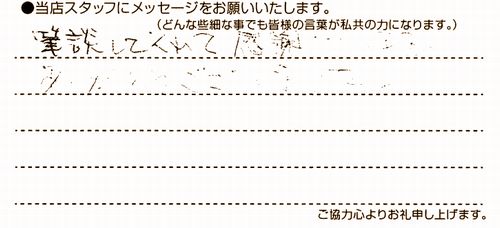 ●当店スタッフにメッセージをお願いいたします。
(どんな些細な事でも皆様の言葉が私共の力になります。)
筆談してくれて感謝
ご協力心よりお礼申し上げます。